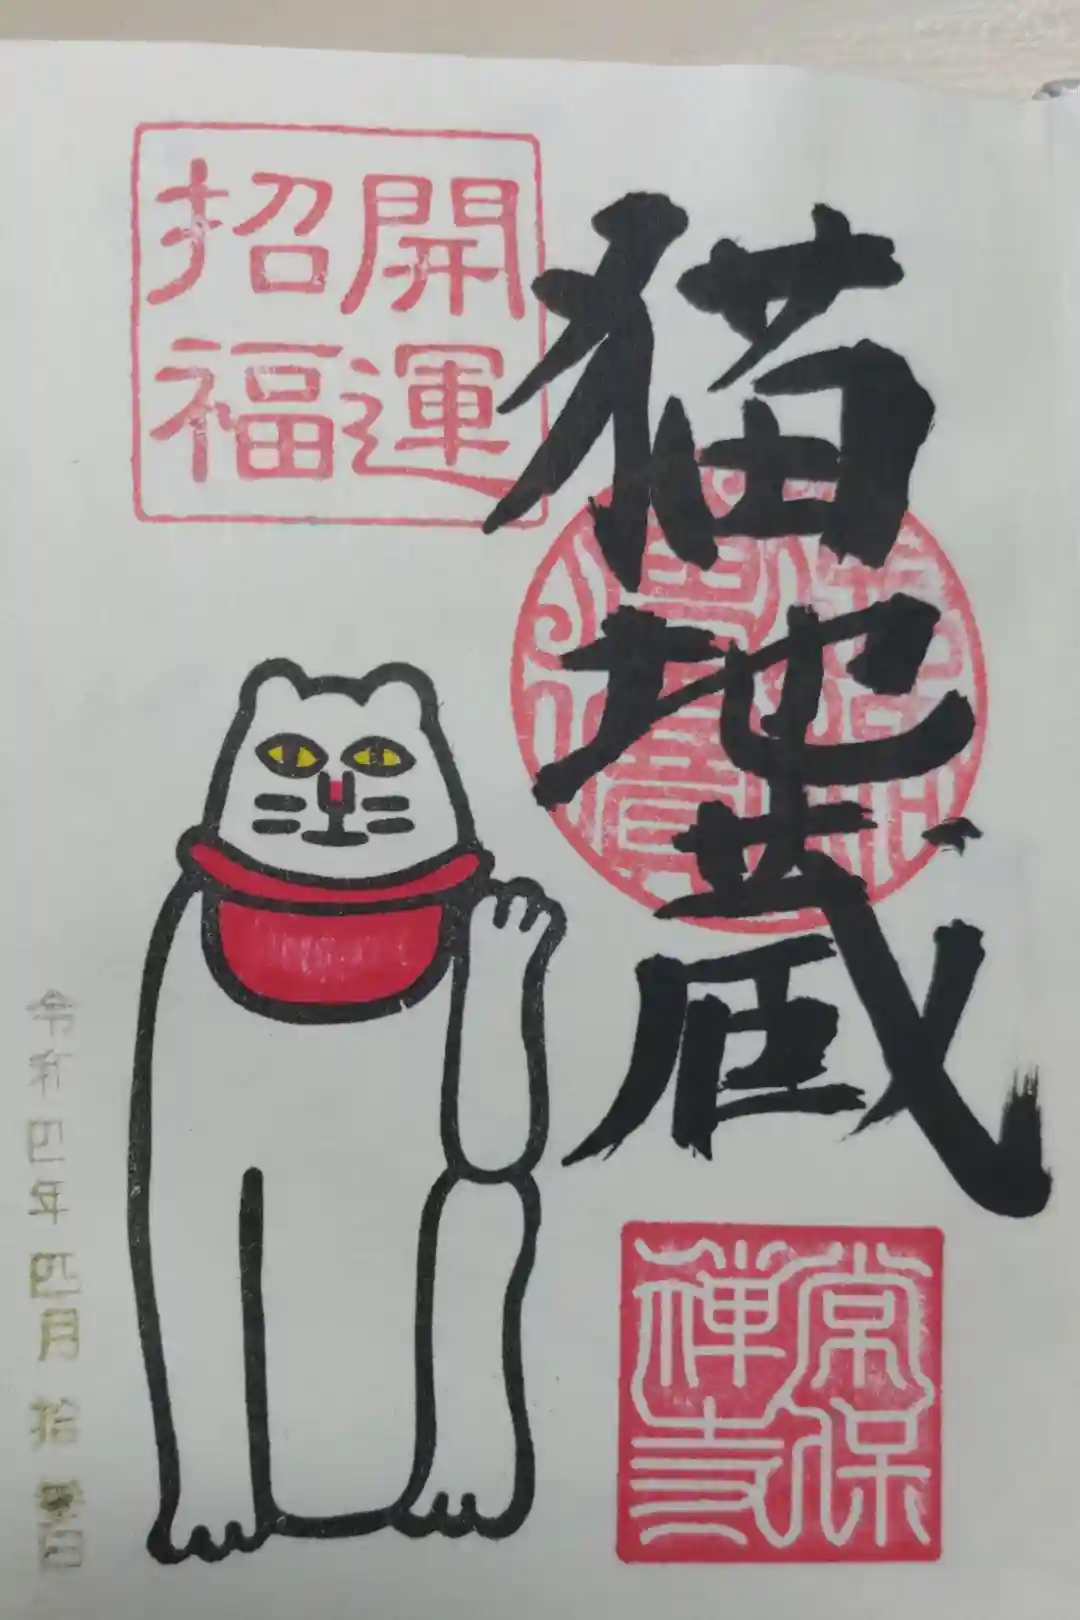 猫地蔵
開運
招福
常保
禅寺
令和四年四月拾
日